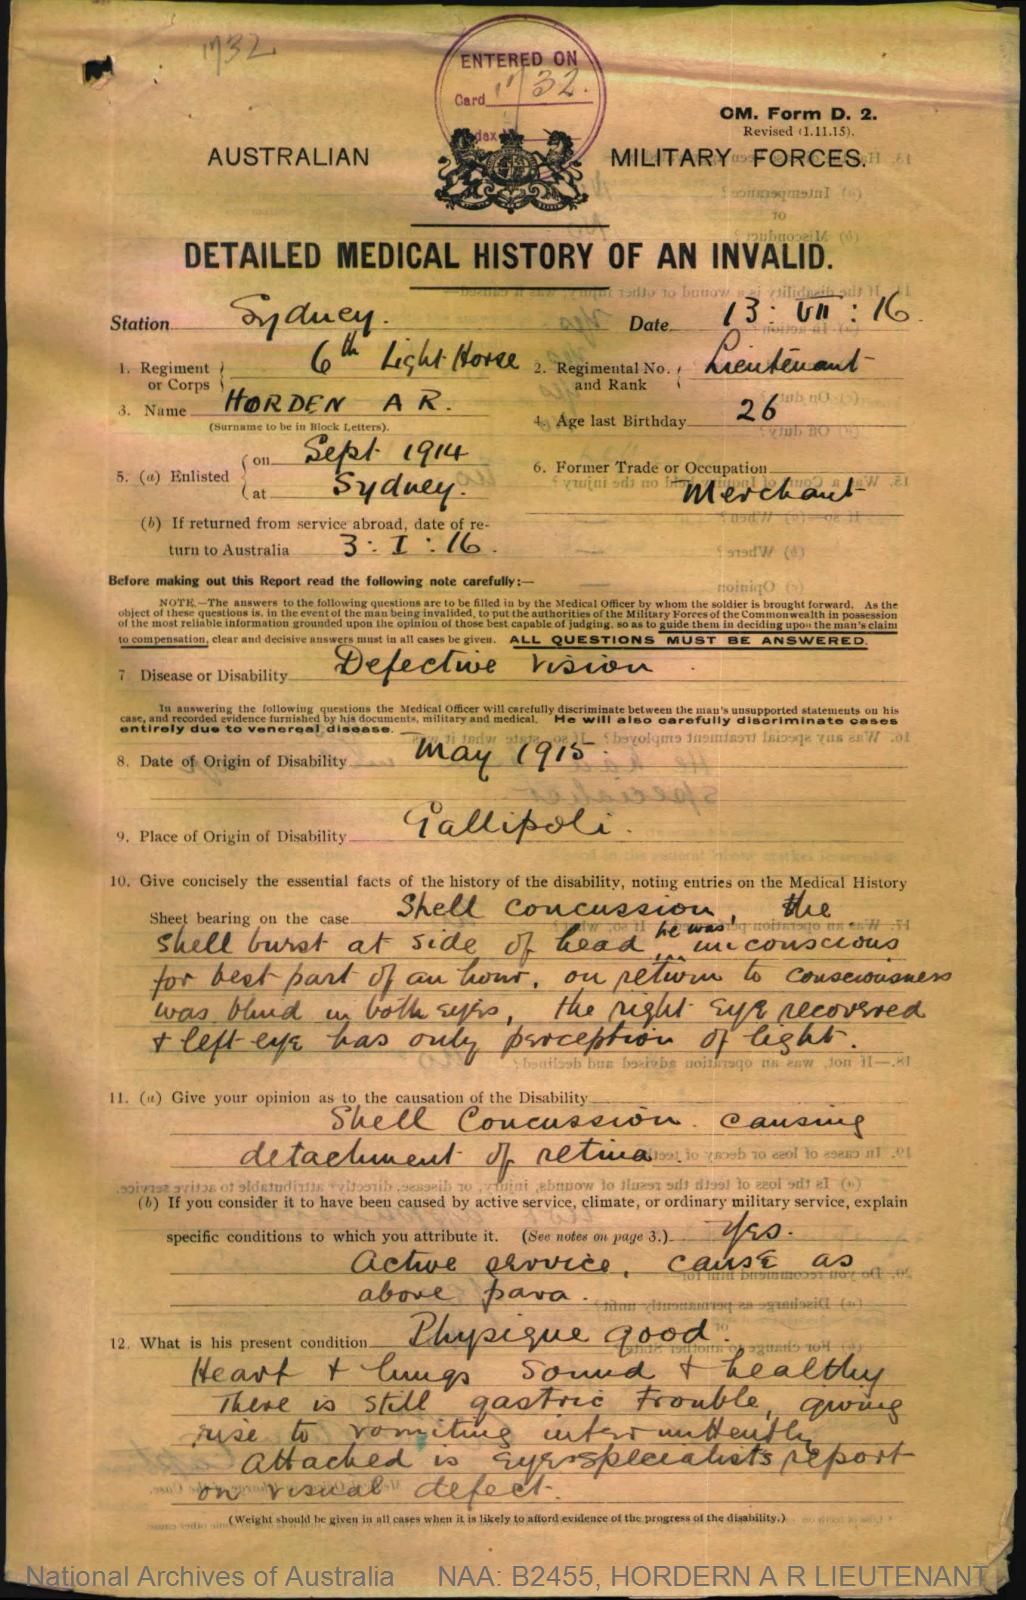 1732
ENTERED ON
Card 1732.
CM. Form D. 2.
Revised (1.11.15).
AUSTRALIAN MILITARY FORCES.
DETAILED MEDICAL HISTORY OF AN INVALID.
Station Sydney. Date 13 : VII : 16.
1. Regiment or Corps 6th Light Horse 2. Regimental No. and Rank Lieutenant
3. Name HORDEN A R. 4. Age last Birthday 26
(Surname to be in Block Letters).
5. (a) Enlisted on Sept 1914 6. Former Trade or Occupation
at Sydney. Merchant
(b) If returned from service abroad, date of re-
turn to Australia 3 : I : 16.
Before making out this Report read the following note carefully:—
NOTE.—The answers to the following questions are to be filled in by the Medical Officer by whom the soldier is brought forward. As the
object of these questions is, in the event of the man being invalided, to put the authorities of the Military Forces of the Commonwealth in possession
of the most reliable information grounded upon the opinion of those best capable of judging, so as to guide them in deciding upon the man's claim
to compensation, clear and decisive answers must in all cases be given. ALL QUESTIONS MUST BE ANSWERED.
7. Disease or Disability Defective Vision.
In answering the following questions the Medical Officer will carefully discriminate between the man's unsupported statements on his
case, and recorded evidence furnished by his documents, military and medical. He will also carefully discriminate cases
entirely due to venereal disease.
8. Date of Origin of Disability May 1915.
9. Place of Origin of Disability Gallipoli.
10. Give concisely the essential facts of the history of the disability, noting entries on the Medical History
Sheet bearing on the case Shell concussion, the
shell burst at side of head, he was unconscious
for best part of an hour, on return to consciousness
was blind in both eyes, the right eye recovered
& left eye has only perception of light.
11. (a) Give your opinion as to the causation of the Disability
Shell Concussion. causing
detachment of retina.
(b) If you consider it to have been caused by active service, climate, or ordinary military service, explain
specific conditions to which you attribute it. (See notes on page 3.) Yes.
Active service, cause as
above para.
12. What is his present condition Physique good.
Heart & lungs sound & healthy
There is still gastric trouble, giving
rise to vomiting intermittently
Attached is eye specialist's report
on visual defect.
(Weight should be given in all cases when it is likely to afford evidence of the progress of the disability.)
National Archives of Australia NAA: B2455, HORDERN A R LIEUTENANT